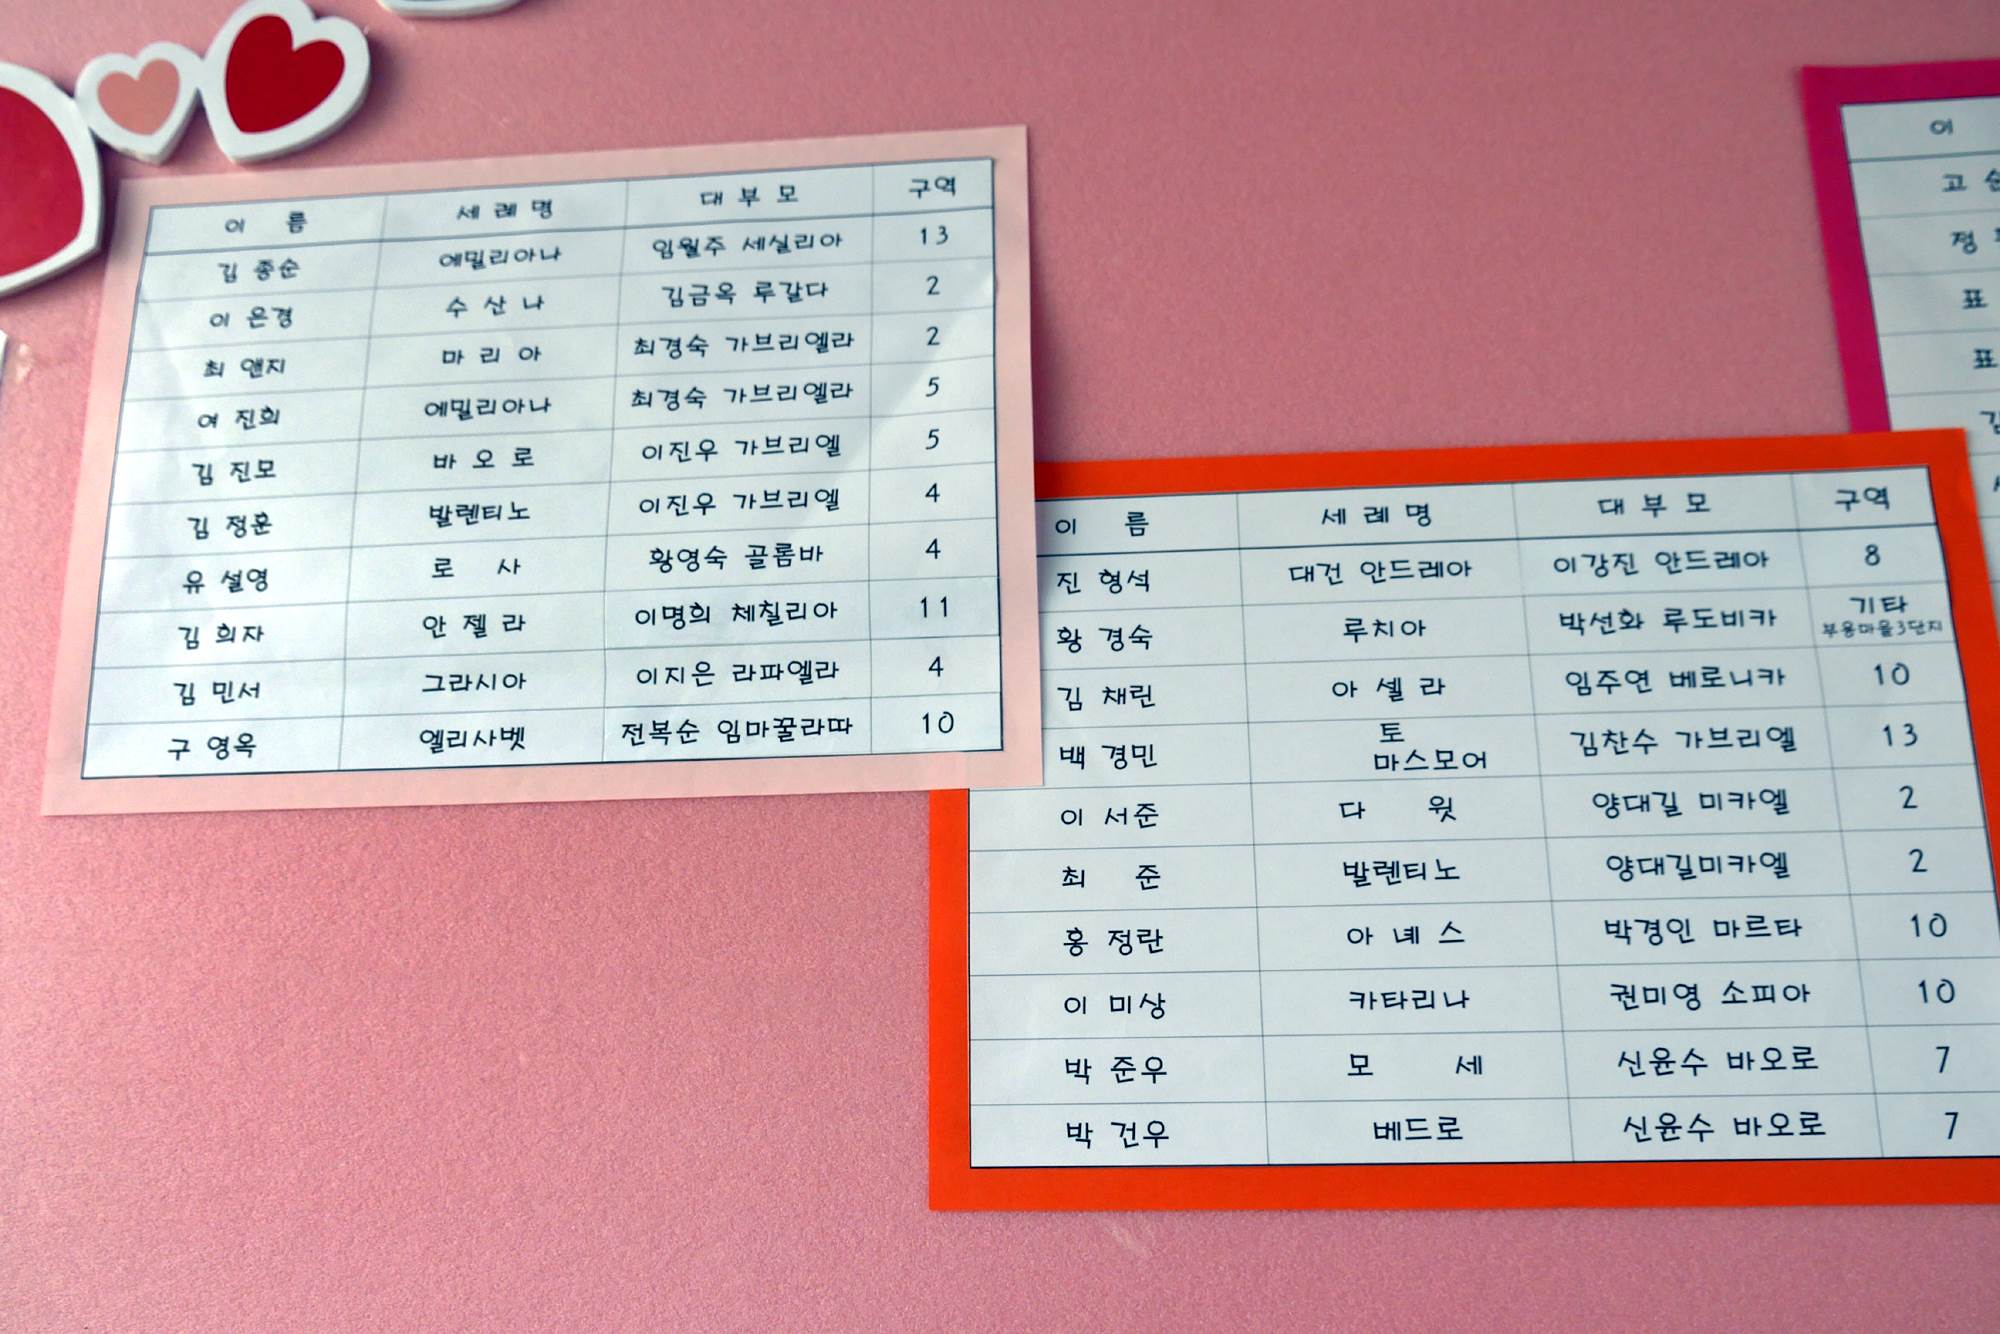 이 름 세 례 명 대 부 모 구역
김 종순 에밀리아나 임월주 세실리아 13
이 은경 수 산 나 김금옥 루갈다 2
최 앤지 마 리 아 최경숙 가브리엘라 2
여 진희 에밀리아나 최경숙 가브리엘라 5
김 진모 바 오 로 이진우 가브리엘 5
김 정훈 발렌티노 이진우 가브리엘 4
유 설영 로 사 황영숙 골롬바 4
김 희자 안 젤 라 이명희 체칠리아 11
김 민서 그라시아 이지은 라파엘라 4
구 영옥 엘리사벳 전복순 임마꿀라따 10
이 름 세 례 명 대 부 모 구역
진 형석 대건 안드레아 이강진 안드레아 8
황 경숙 루치아 박선화 루도비카 기타
부용마을3단지
김 채린 아 셀 라 임주연 베로니카 10
백 경민 토
마스모어 김찬수 가브리엘 13
이 서준 다 윗 양대길 미카엘 2
최 준 발렌티노 양대길미카엘 2
홍 정란 아 녜 스 박경인 마르타 10
이 미상 카타리나 권미영 소피아 10
박 준우 모 세 신윤수 바오로 7
박 건우 베드로 신윤수 바오로 7
이
고
정
표
표